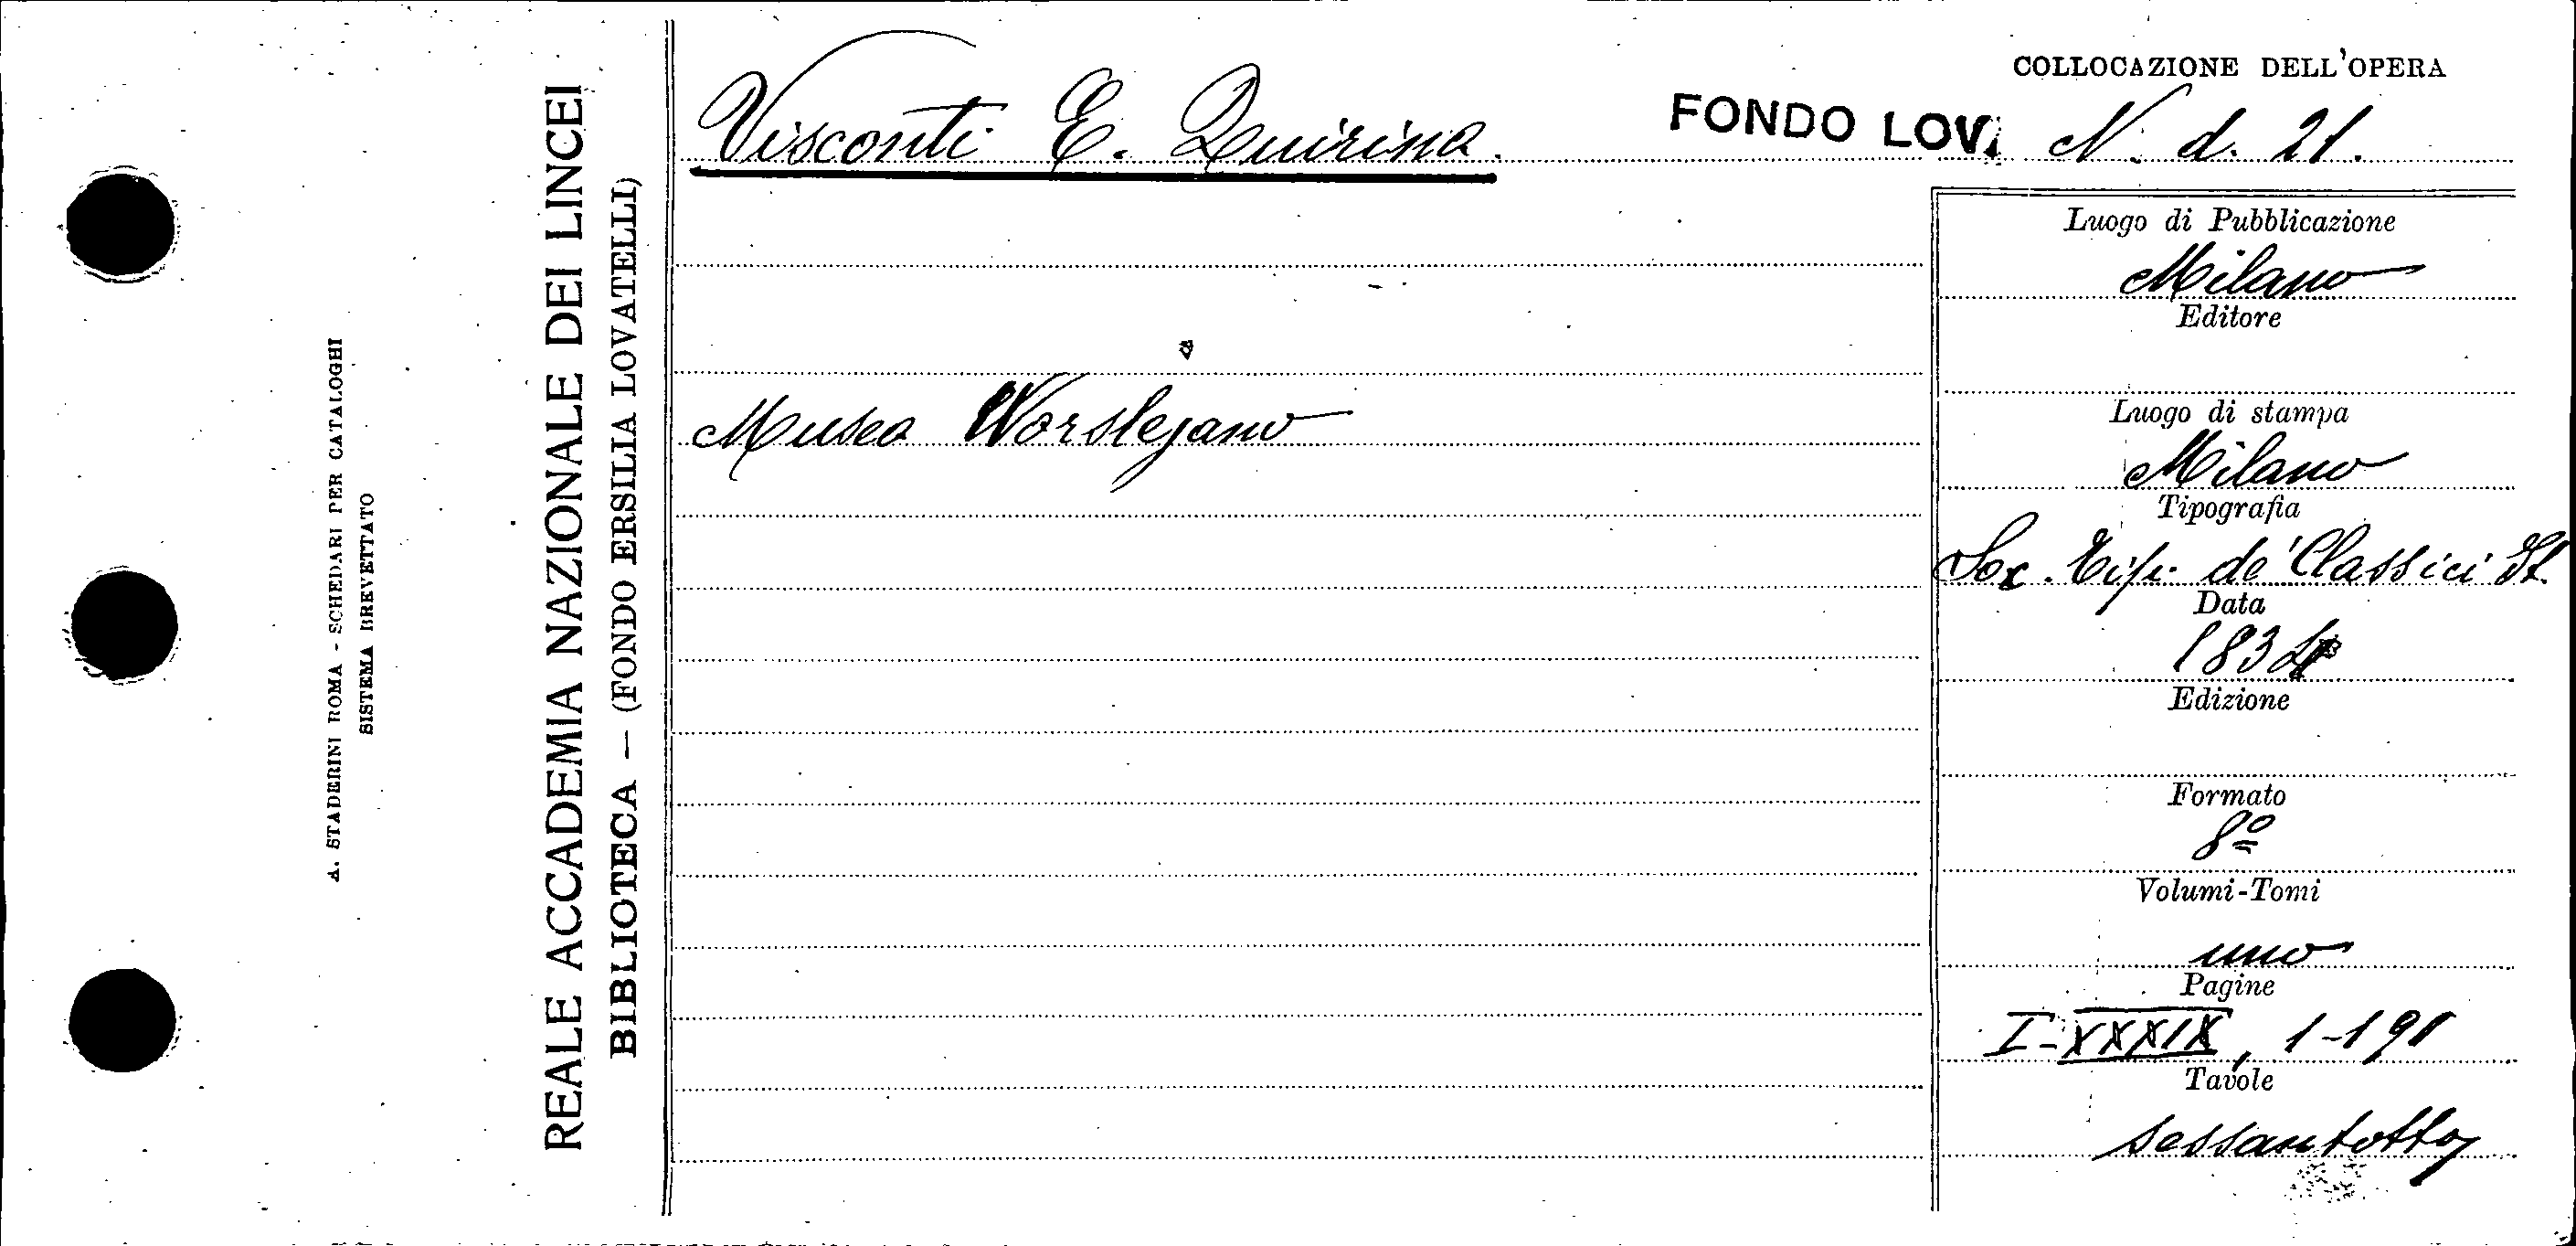 COLLOCAZIONE DELL'OPERA
Visconti E. Quirino.
FONDO LOV. N. d. 21.
Luogo di Pubblicazione
Milano
Editore
Museo Worslejano
Luogo di stampa
Milano
Tipografia
Soc. Tip. de' Classici It.
Data
1834
Edizione
Formato
8º
Volumi-Tomi
uno
Pagine
I-XXXIX, 1-191
Tavole
sessantotto
REALE ACCADEMIA NAZIONALE DEI LINCEI
BIBLIOTECA — (FONDO ERSILIA LOVATELLI)
A. STADERINI ROMA - SCHEDARI PER CATALOGHI
SISTEMA BREVETTATO